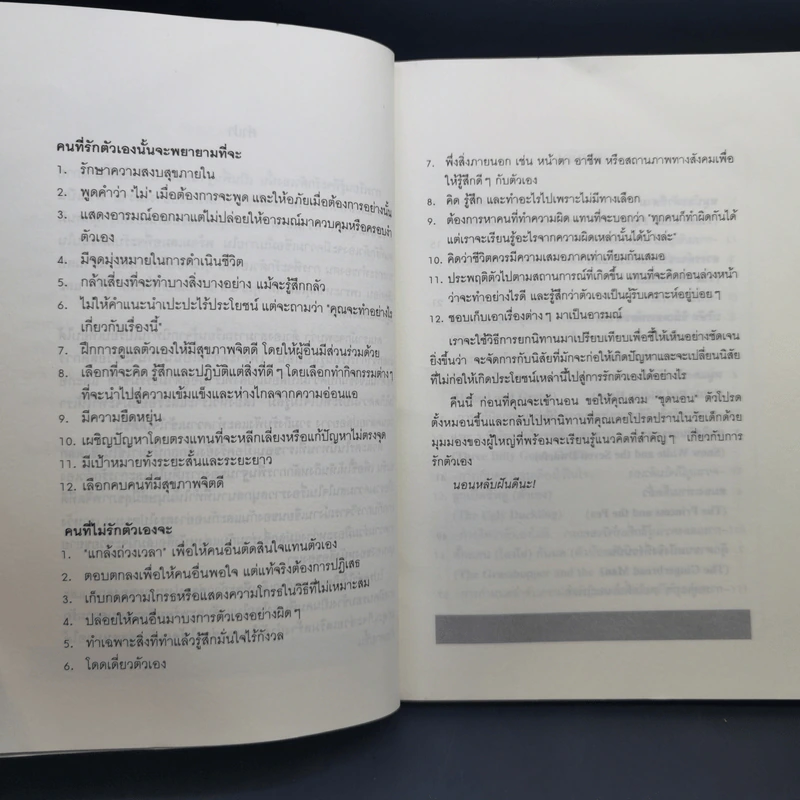 คนที่รักตัวเองนั้นจะพยายามที่จะ
1. รักษาความสงบสุขภายใน
2. พูดคำว่า "ไม่" เมื่อต้องการจะพูด และให้อภัยเมื่อต้องการอย่างนั้น
3. แสดงอารมณ์ออกมาแต่ไม่ปล่อยให้อารมณ์มาควบคุมหรือครอบงำ
ตัวเอง
4. มีจุดมุ่งหมายในการดำเนินชีวิต
5. กล้าเสี่ยงที่จะทำบางสิ่งบางอย่าง แม้จะรู้สึกกลัว
6. ไม่ให้คำแนะนำเปะปะไร้ประโยชน์ แต่จะถามว่า "คุณจะทำอย่างไร
เกี่ยวกับเรื่องนี้"
7. ฝึกการดูแลตัวเองให้มีสุขภาพจิตดี โดยให้ผู้อื่นมีส่วนร่วมด้วย
8. เลือกที่จะคิด รู้สึกและปฏิบัติแต่สิ่งที่ดีๆ โดยเลือกทำกิจกรรมต่างๆ
ที่จะนำไปสู่ความเข้มแข็งและห่างไกลจากความอ่อนแอ
9. มีความยืดหยุ่น
10. เผชิญปัญหาโดยตรงแทนที่จะหลีกเลี่ยงหรือแก้ปัญหาไม่ตรงจุด
11. มีเป้าหมายทั้งระยะสั้นและระยะยาว
12. เลือกคบคนที่มีสุขภาพจิตดี
คนที่ไม่รักตัวเองจะ
1. "แกล้งถ่วงเวลา" เพื่อให้คนอื่นตัดสินใจแทนตัวเอง
2. ตอบตกลงเพื่อให้คนอื่นพอใจ แต่แท้จริงต้องการปฏิเสธ
3. เก็บกดความโกรธหรือแสดงความโกรธในวิธีที่ไม่เหมาะสม
4. ปล่อยให้คนอื่นมาบงการตัวเองอย่างผิดๆ
5. ทำเฉพาะสิ่งที่ทำแล้วรู้สึกมั่นใจไร้กังวล
6. โดดเดี่ยวตัวเอง
7. พึ่งสิ่งภายนอก เช่น หน้าตา อาชีพ หรือสถานภาพทางสังคมเพื่อ
ให้รู้สึกดีๆ กับตัวเอง
8. คิด รู้สึก และทำอะไรไปเพราะไม่มีทางเลือก
9. ต้องการหาคนที่ทำความผิด แทนที่จะบอกว่า "ทุกคนก็ทำผิดกันได้
แต่เราจะเรียนรู้อะไรจากความผิดเหล่านั้นได้บ้างล่ะ"
10. คิดว่าชีวิตควรมีความเสมอภาคเท่าเทียมกันเสมอ
11. ประพฤติตัวไปตามสถานการณ์ที่เกิดขึ้น แทนที่จะคิดก่อนล่วงหน้า
ว่าจะทำอย่างไรดี และรู้สึกว่าตัวเองเป็นผู้รับเคราะห์อยู่บ่อยๆ
12. ชอบเก็บเอาเรื่องต่างๆ มาเป็นอารมณ์
เราจะใช้วิธีการยกนิทานมาเปรียบเทียบเพื่อชี้ให้เห็นอย่างชัดเจน
ยิ่งขึ้นว่า จะจัดการกับนิสัยที่มักจะก่อให้เกิดปัญหาและจะเปลี่ยนนิสัย
ที่ไม่ก่อให้เกิดประโยชน์เหล่านี้ไปสู่การรักตัวเองได้อย่างไร
คืนนี้ ก่อนที่คุณจะเข้านอน ขอให้คุณสวม "ชุดนอน" ตัวโปรด
ตั้งหมอนขึ้นและกลับไปหานิทานที่คุณเคยโปรดปรานในวัยเด็กด้วย
มุมมองของผู้ใหญ่ที่พร้อมจะเรียนรู้แนวคิดที่สำคัญๆ เกี่ยวกับการ
รักตัวเอง
นอนหลับฝันดีนะ!